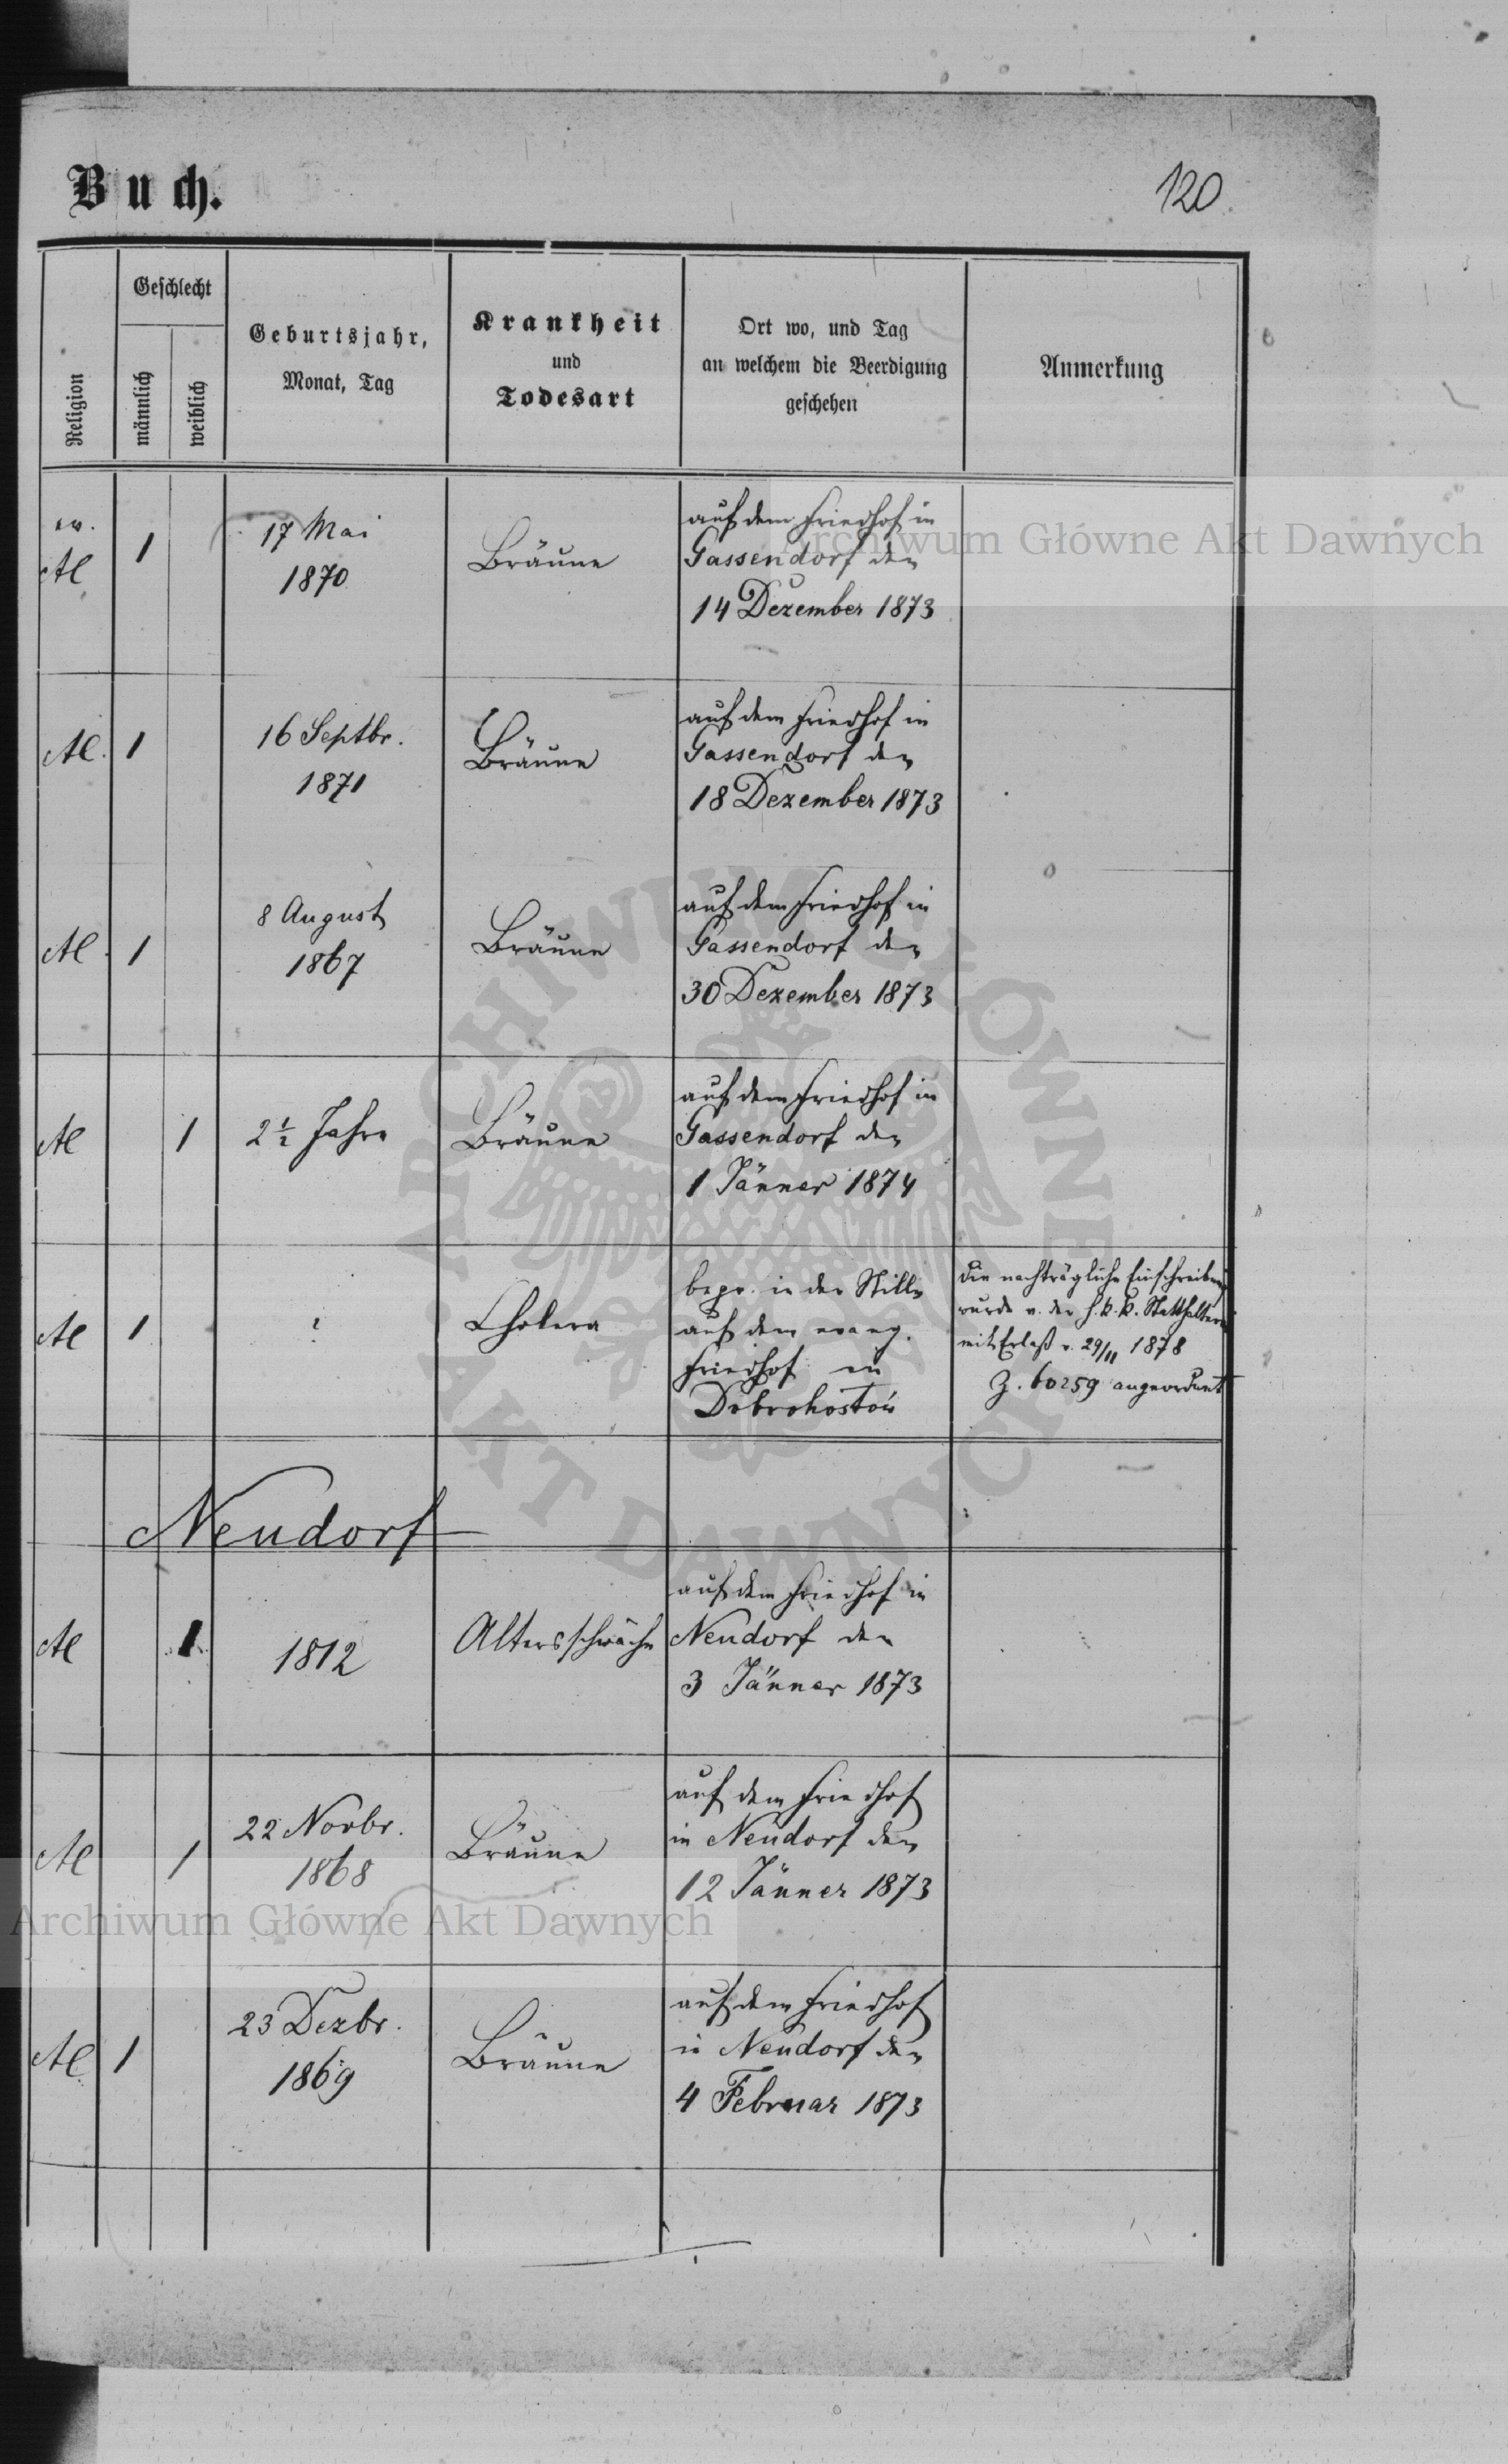 Buch.
120
Religion
Geschlecht
männlich
weiblich
Geburtsjahr,
Monat, Tag
Krankheit
und
Todesart
Ort wo, und Tag
an welchem die Beerdigung
geschehen
Anmerkung
ev.
AC
1
17 Mai
1870
Bräune
auf dem Friedhof in
Gassendorf den
14 Dezember 1873
AC.
1
16 Septbr.
1871
Bräune
auf dem Friedhof in
Gassendorf den
18 Dezember 1873
AC
1
8 August
1867
Bräune
auf dem Friedhof in
Gassendorf den
30 Dezember 1873
AC
1
2½ Jahre
Bräune
auf dem Friedhof in
Gassendorf den
1 Jänner 1874
AC
1
?
Cholera
in der Stille
auf dem evang.
Friedhof in
Dobrohostów
Die nachträgliche Einschreibung
wurde v. der h. k. k. Statthalterei
mit Erlaß v. 29/11 1878
Z. 60259 angeordnet
Neudorf
AC
1
1812
Altersschwäche
auf dem Friedhof in
Neudorf den
3 Jänner 1873
AC
1
22 Novbr.
1868
Bräune
auf dem Friedhof
in Neudorf den
12 Jänner 1873
AC
1
23 Dezbr.
1869
Bräune
auf dem Friedhof
in Neudorf den
4 Februar 1873
Archiwum Główne Akt Dawnych
ARCHIWUM GŁÓWNE
AKT DAWNYCH
Archiwum Główne Akt Dawnych